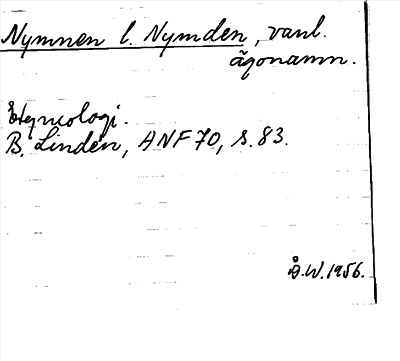 Nymnen l. Nymden, vanl.
ägonamn.
Etymologi.
B. Lindén, ANF 70, s. 83.
Å.W. 1956.